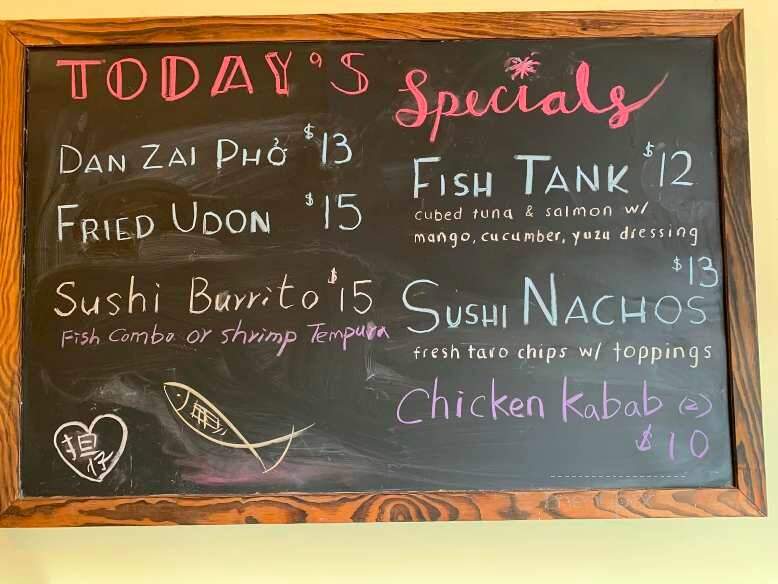 TODAY'S Specials
DAN ZAI PHỞ $13
FRIED UDON $15
Sushi Burrito $15
Fish Combo or Shrimp Tempura
担
仔
FISH TANK $12
cubed tuna & salmon w/
mango, cucumber, yuzu dressing
$13
SUSHI NACHOS
fresh taro chips w/ toppings
Chicken Kabab (2)
$10